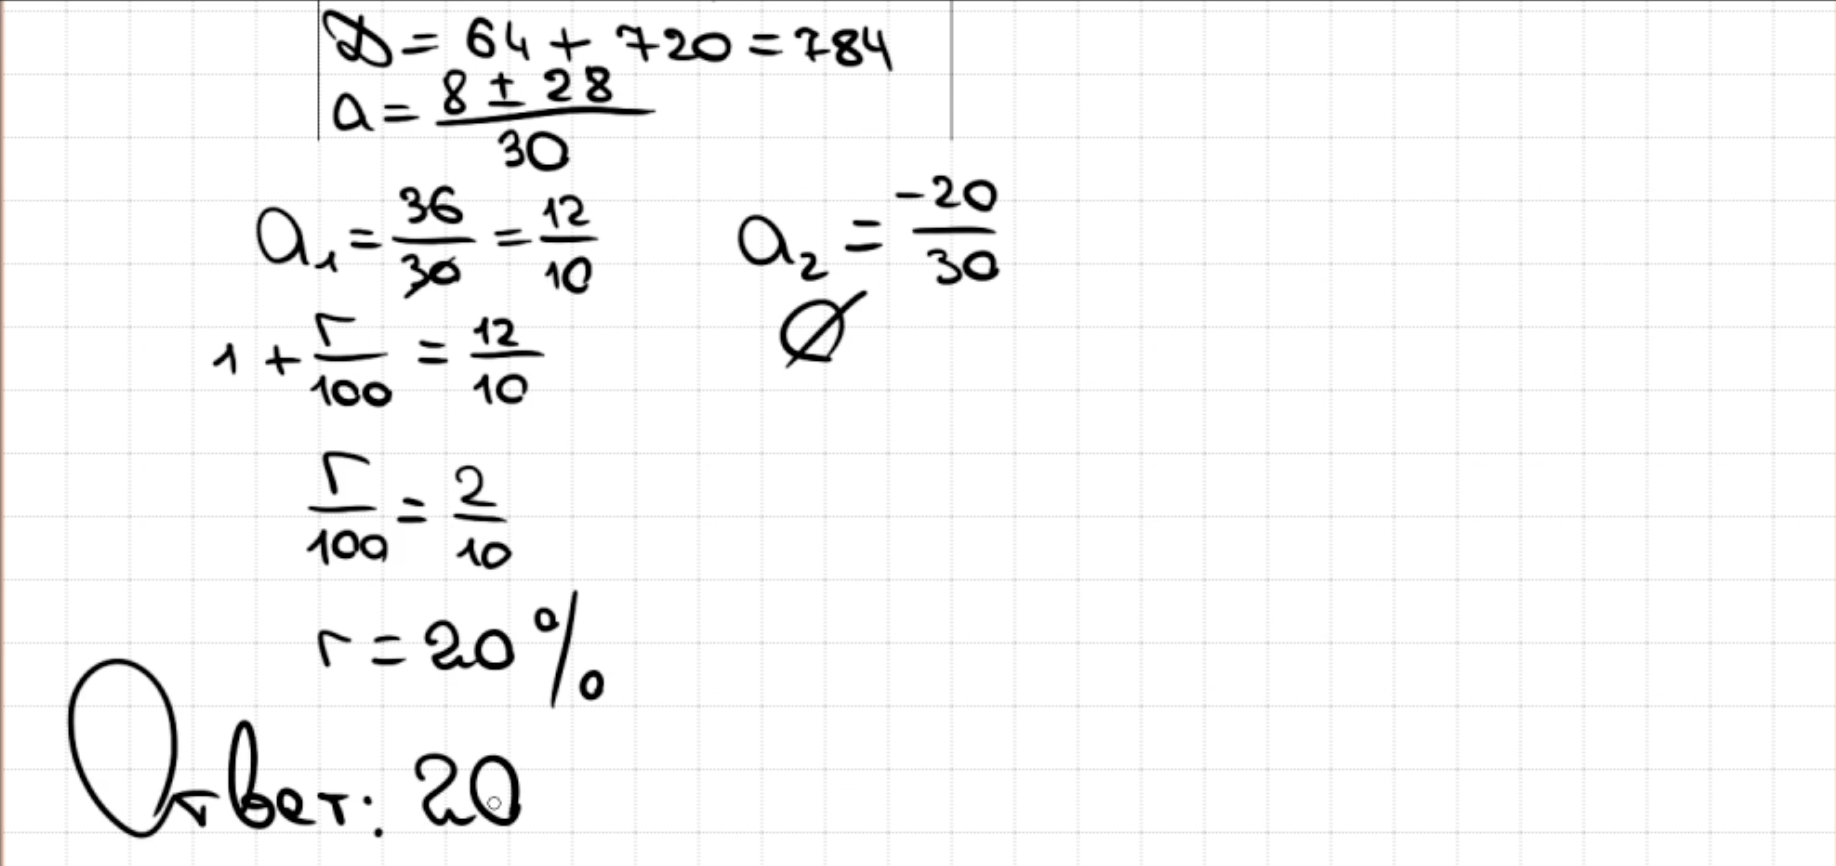 D = 64 + 720 = 784
a = (8 ± 28)/30
a₁ = 36/30 = 12/10    a₂ = -20/30
∅
1 + r/100 = 12/10
r/100 = 2/10
r = 20%
Ответ: 20